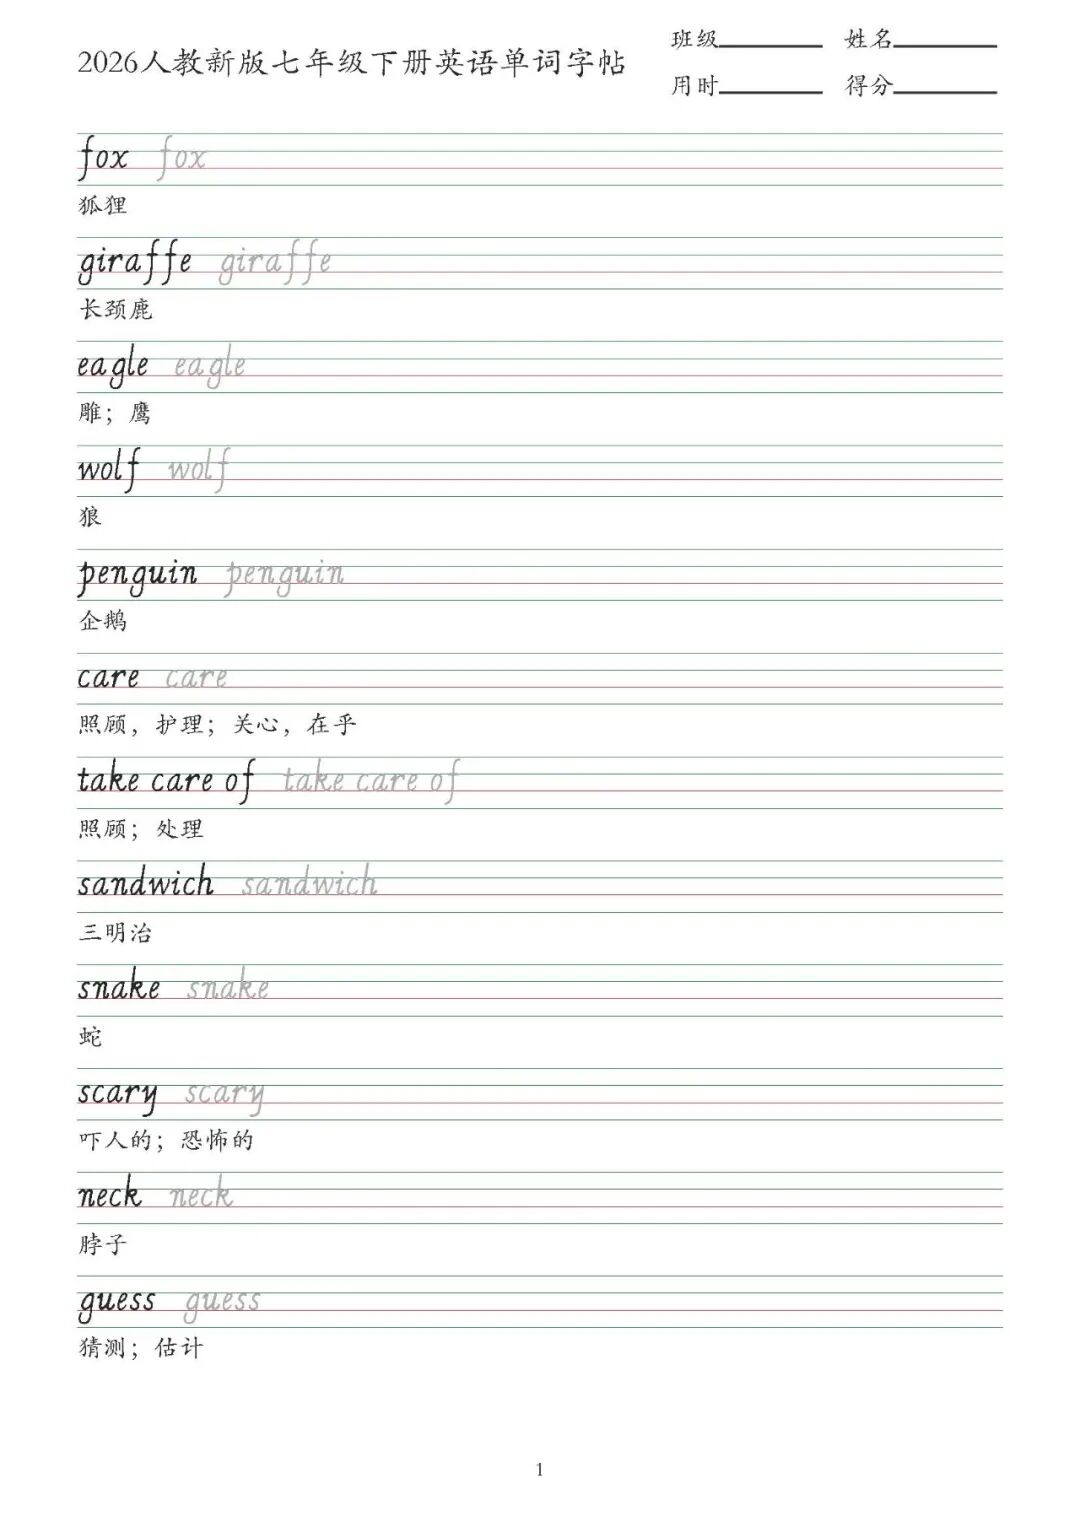 2026人教新版七年级下册英语单词字帖
班级 姓名
用时 得分
fox fox
狐狸
giraffe giraffe
长颈鹿
eagle eagle
雕；鹰
wolf wolf
狼
penguin penguin
企鹅
care care
照顾，护理；关心，在乎
take care of take care of
照顾；处理
sandwich sandwich
三明治
snake snake
蛇
scary scary
吓人的；恐怖的
neck neck
脖子
guess guess
猜测；估计
1